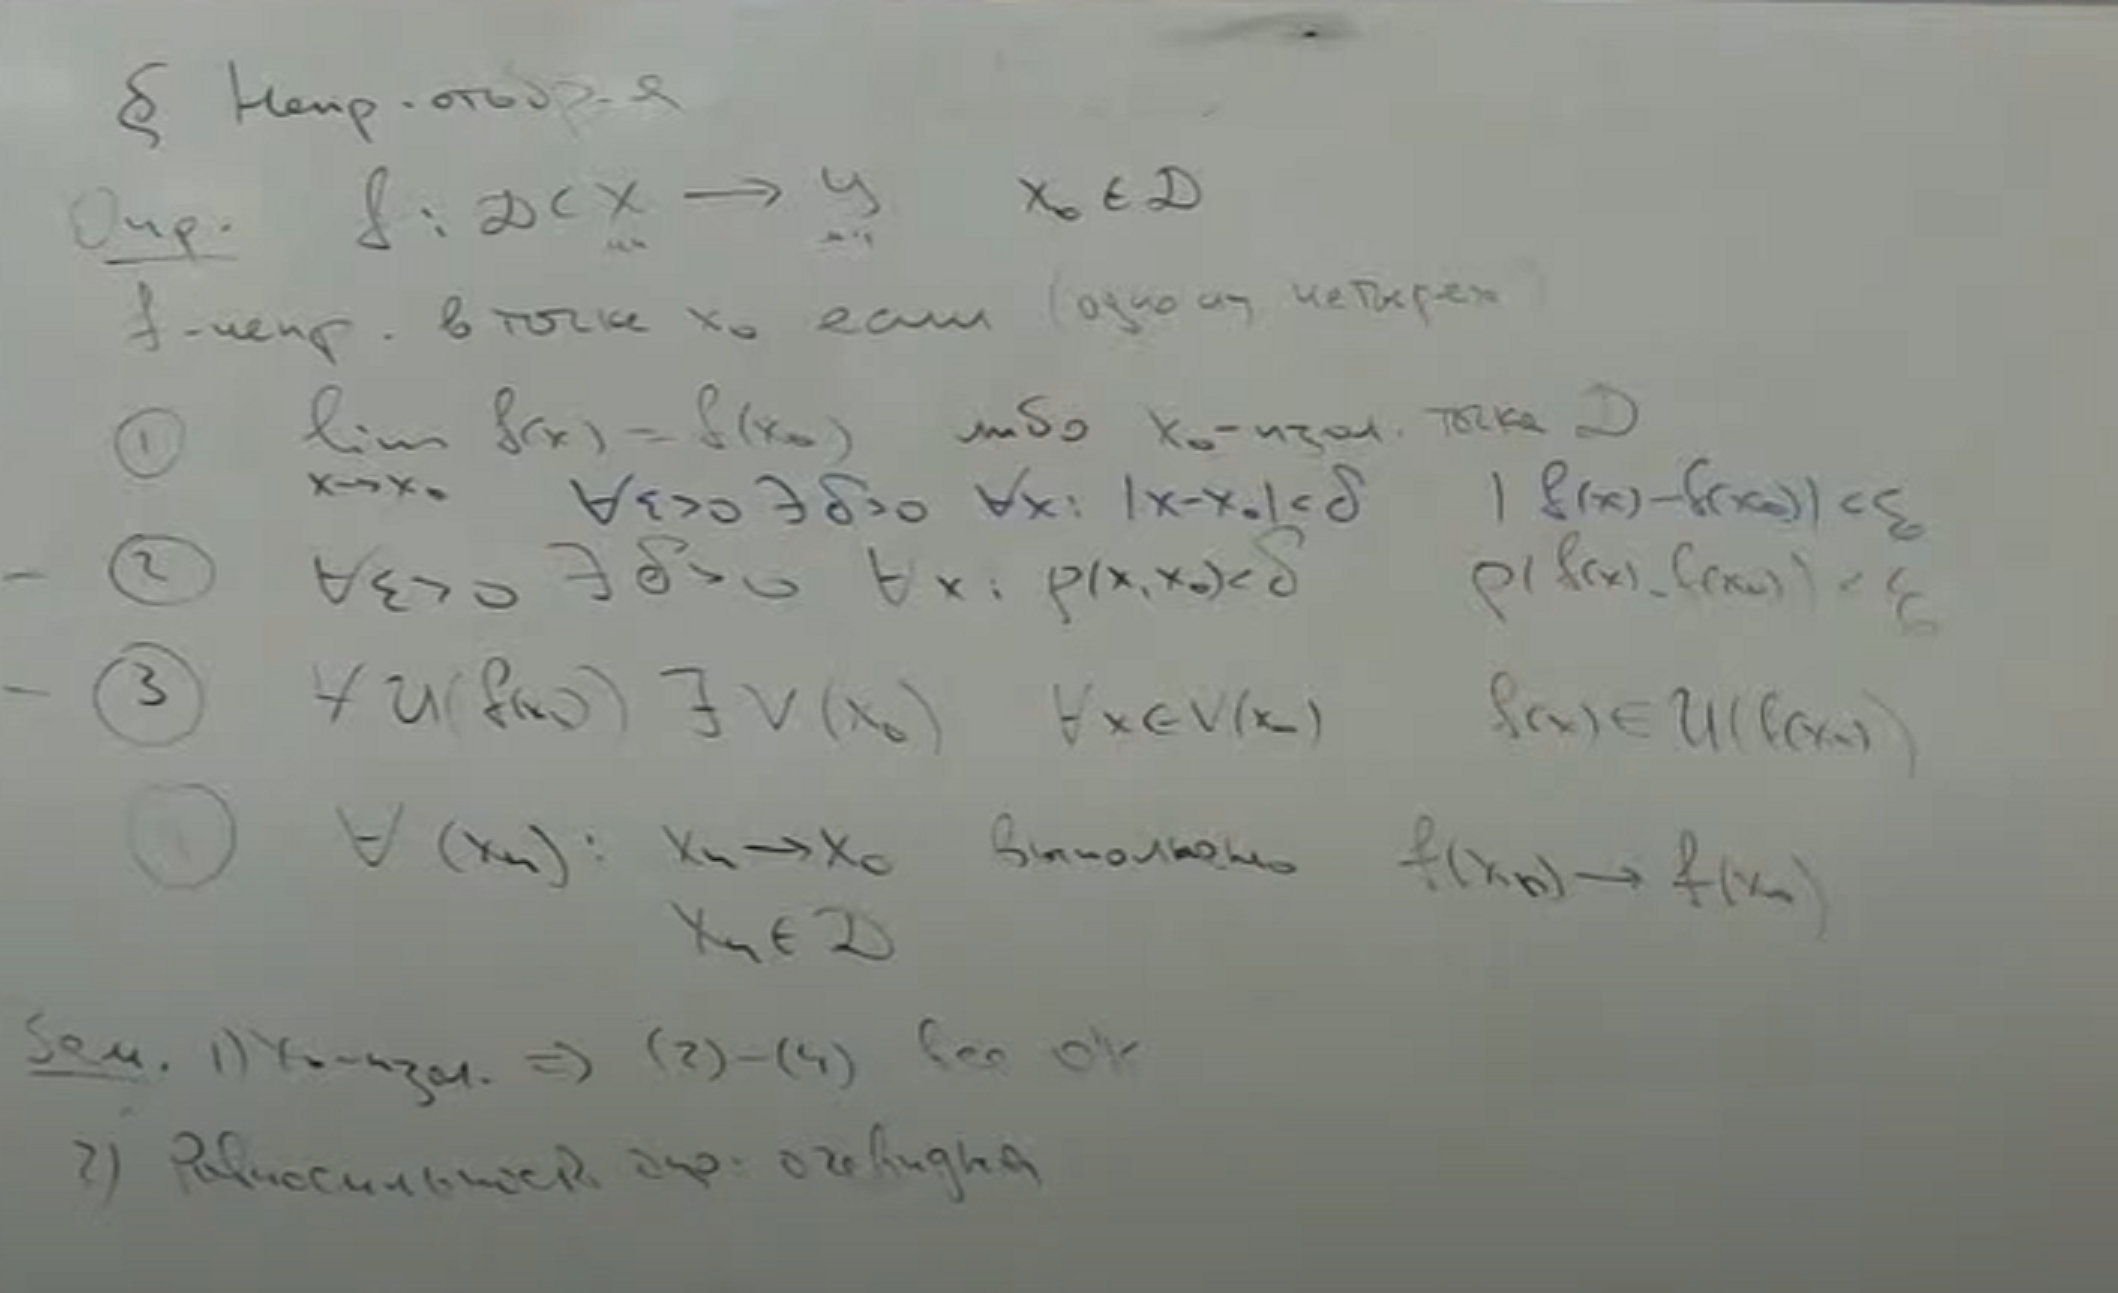 § Непр. отобр-я
Опр. f : D ⊂ X → Y x₀ ∈ D
м.п. м.п.
f - непр. в точке x₀ если (одно из четырех)
① lim f(x) = f(x₀) либо x₀ - изол. точка D
x→x₀ ∀ε>0 ∃δ>0 ∀x: |x-x₀|<δ |f(x)-f(x₀)|<ε
- ② ∀ε>0 ∃δ>0 ∀x: ρ(x,x₀)<δ ρ(f(x), f(x₀))<ε
- ③ ∀U(f(x₀)) ∃V(x₀) ∀x∈V(x₀) f(x)∈U(f(x₀))
∀(xₙ): xₙ→x₀ выполнено f(xₙ)→f(x₀)
xₙ∈D
Зам. 1) x₀-изол. ⇒ (2)-(4) все ок
2) Равносильность опр. очевидна